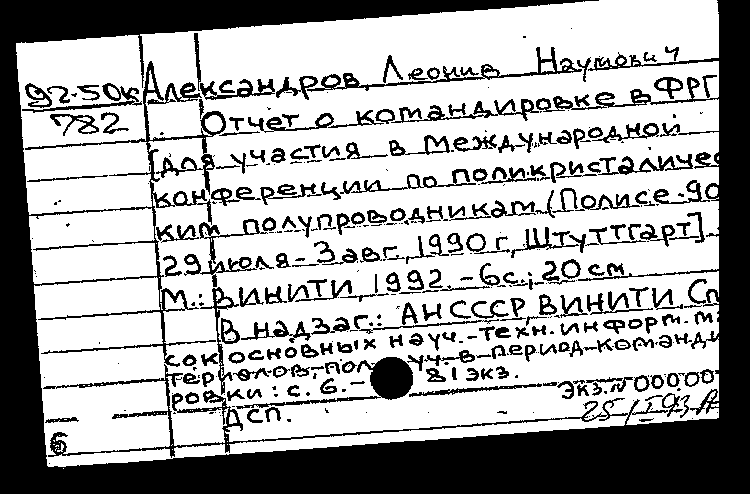 92-50к Александров, Леонид Наумович
782 Отчет о командировке в ФРГ
[для участия в Международной
конференции по поликристаличес
ким полупроводникам (Полисе-90
29 июля - 3 авг., 1990 г., Штуттгарт].
М.: ВИНИТИ, 1992. - 6 с.; 20 см.
В надзаг.: АН СССР, ВИНИТИ. Сп
сок основных науч.-техн. информ. ма
териалов, пол уч. в период команди
ровки: с. 6. - 81 экз.
Экз. N 000 00
ДСП. 25/I.93
б